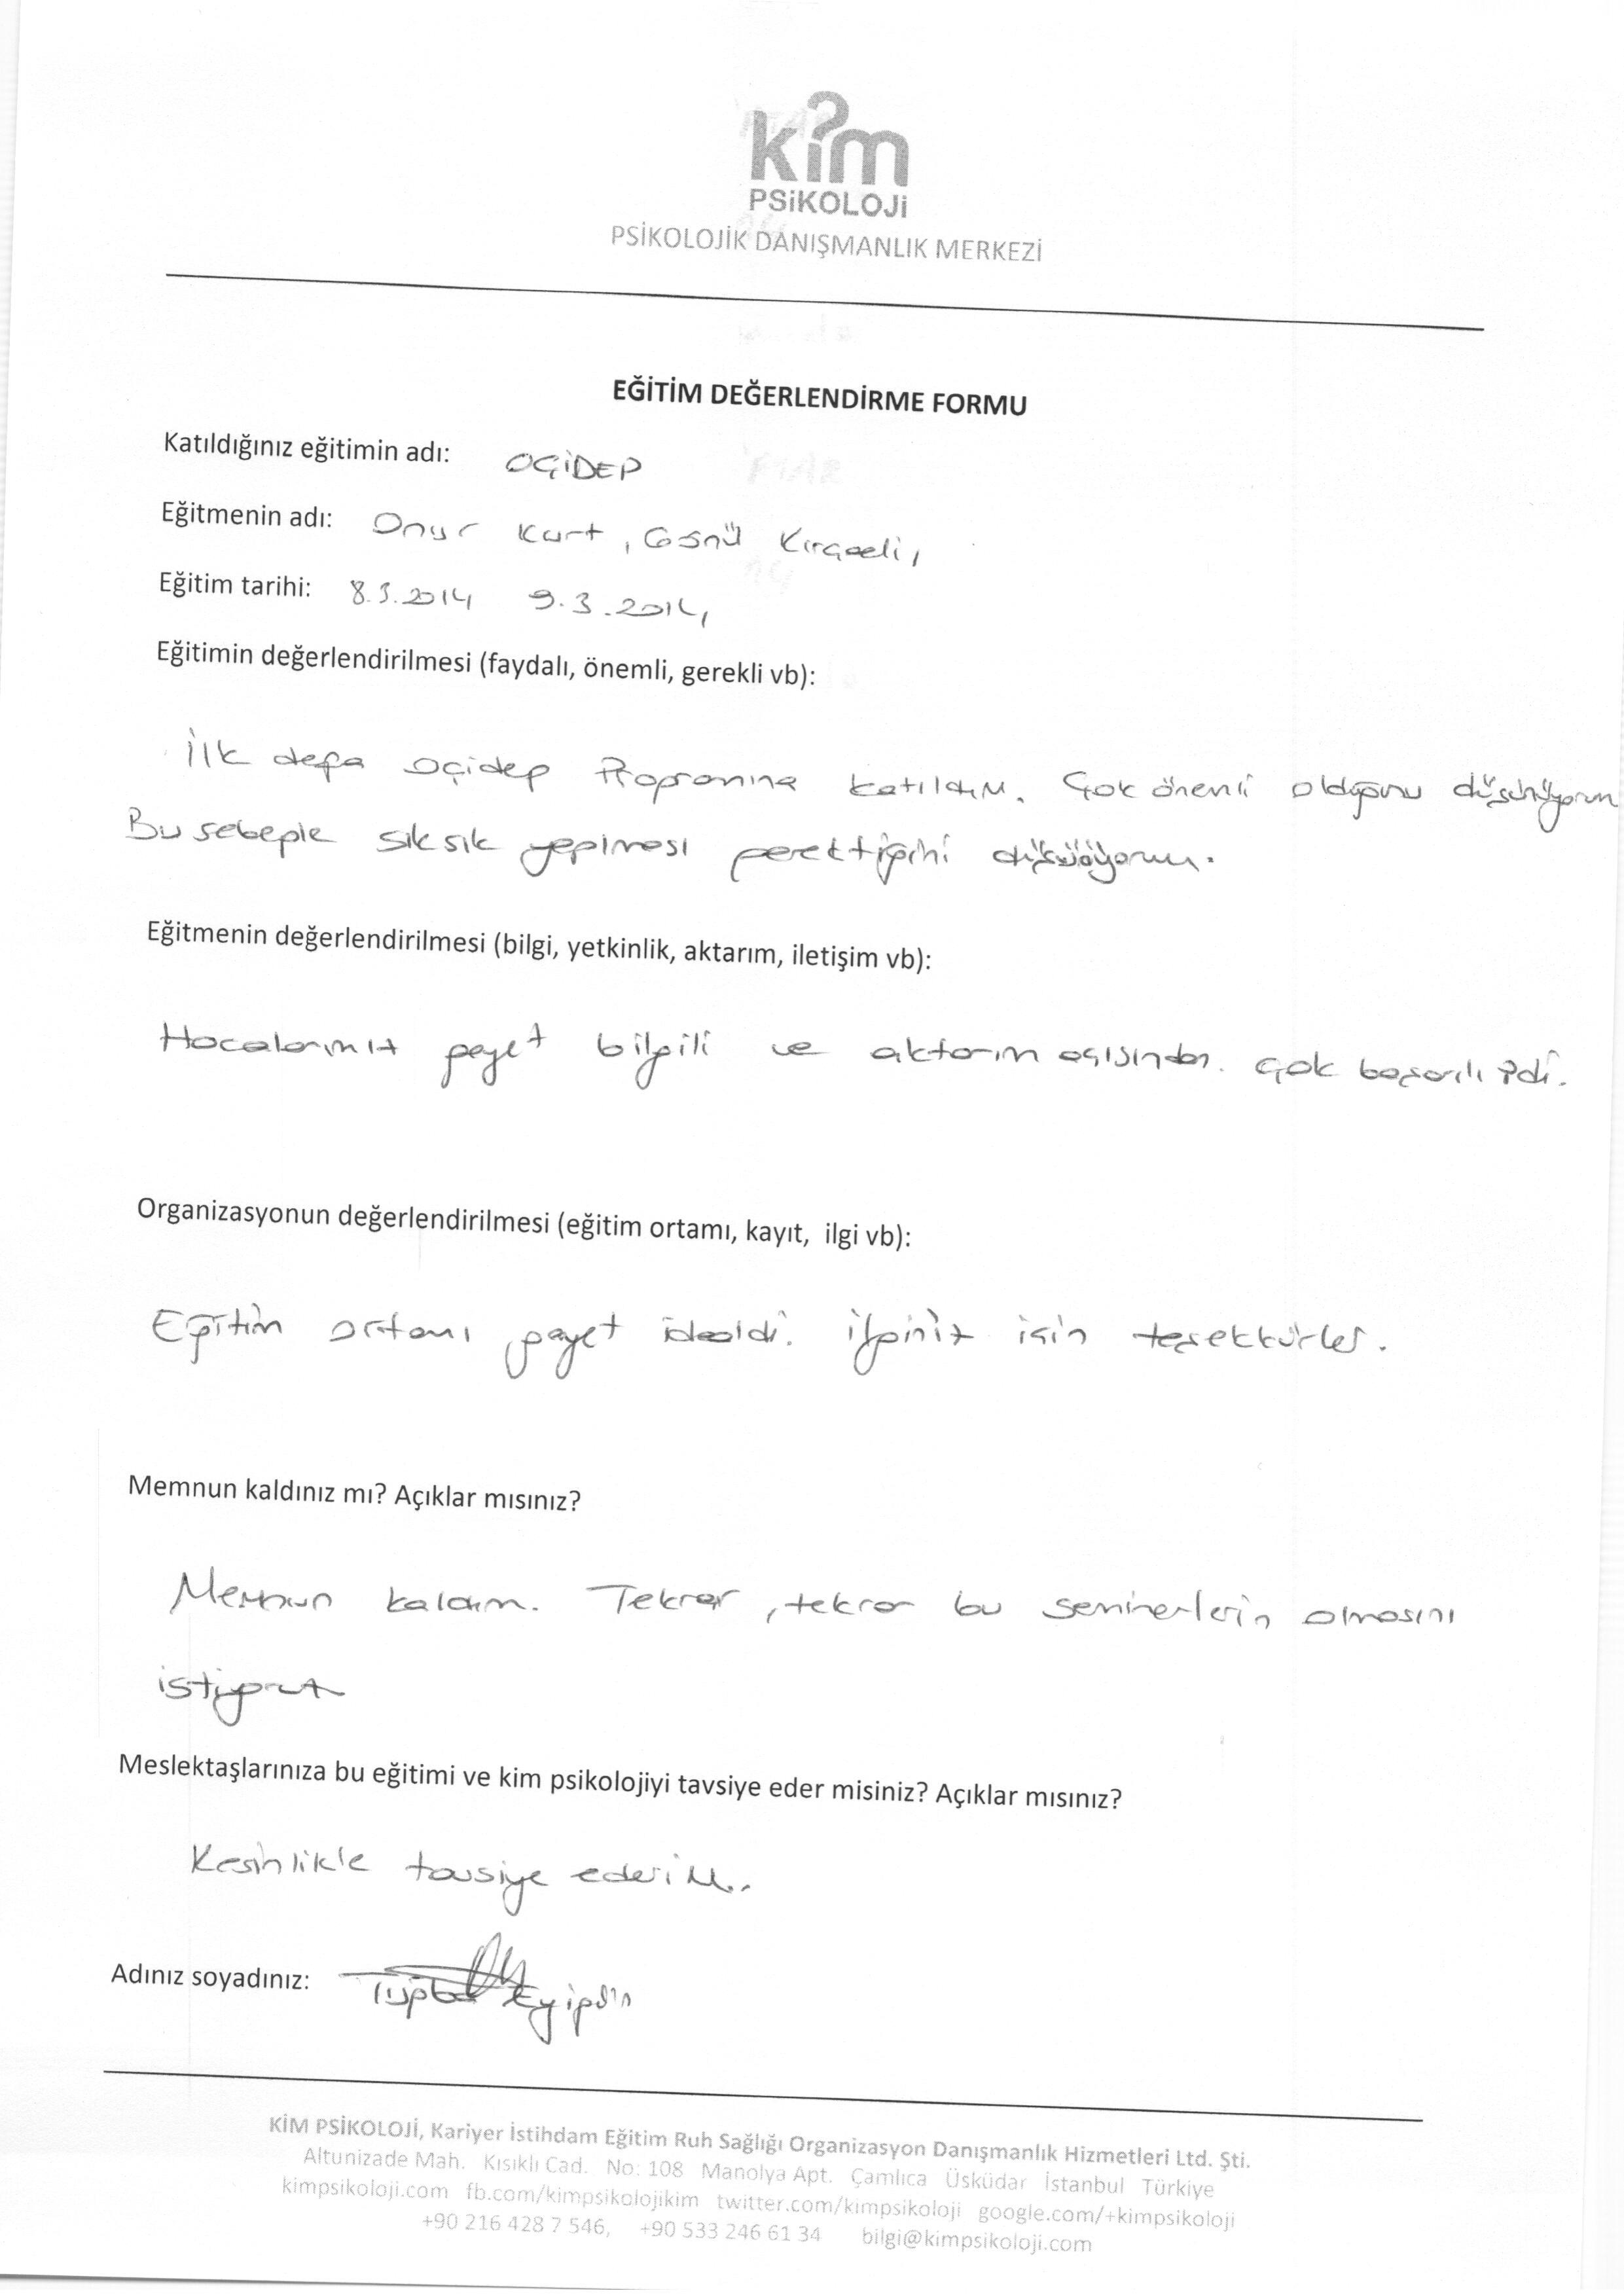 kim
PSiKOLOJi
PSİKOLOJİK DANIŞMANLIK MERKEZİ
EĞİTİM DEĞERLENDİRME FORMU
Katıldığınız eğitimin adı: OÇİDEP
Eğitmenin adı: Onur Kurt, Gönül
Eğitim tarihi: 8.3.2014 9.3.2014
Eğitimin değerlendirilmesi (faydalı, önemli, gerekli vb):
İlk defa oçidep Programına katıldım. Çok önemli olduğunu düşünüyorum
Bu sebeple sık sık yapılması gerektiğini düşünüyorum.
Eğitmenin değerlendirilmesi (bilgi, yetkinlik, aktarım, iletişim vb):
Hocalarımız gayet bilgili ve aktarım açısından. çok başarılı idi.
Organizasyonun değerlendirilmesi (eğitim ortamı, kayıt, ilgi vb):
Eğitim ortamı gayet idealdi. ilginiz için teşekkürler.
Memnun kaldınız mı? Açıklar mısınız?
Memnun kaldım. Tekrar, tekrar bu seminerlerin olmasını
istiyorum
Meslektaşlarınıza bu eğitimi ve kim psikolojiyi tavsiye eder misiniz? Açıklar mısınız?
Kesinlikle tavsiye ederim.
Adınız soyadınız: Tuğba
KİM PSİKOLOJİ, Kariyer İstihdam Eğitim Ruh Sağlığı Organizasyon Danışmanlık Hizmetleri Ltd. Şti.
Altunizade Mah. Kısıklı Cad. No: 108 Manolya Apt. Çamlıca Üsküdar İstanbul Türkiye
kimpsikoloji.com fb.com/kimpsikolojikim twitter.com/kimpsikoloji google.com/+kimpsikoloji
+90 216 428 7 546, +90 533 246 61 34 bilgi@kimpsikoloji.com